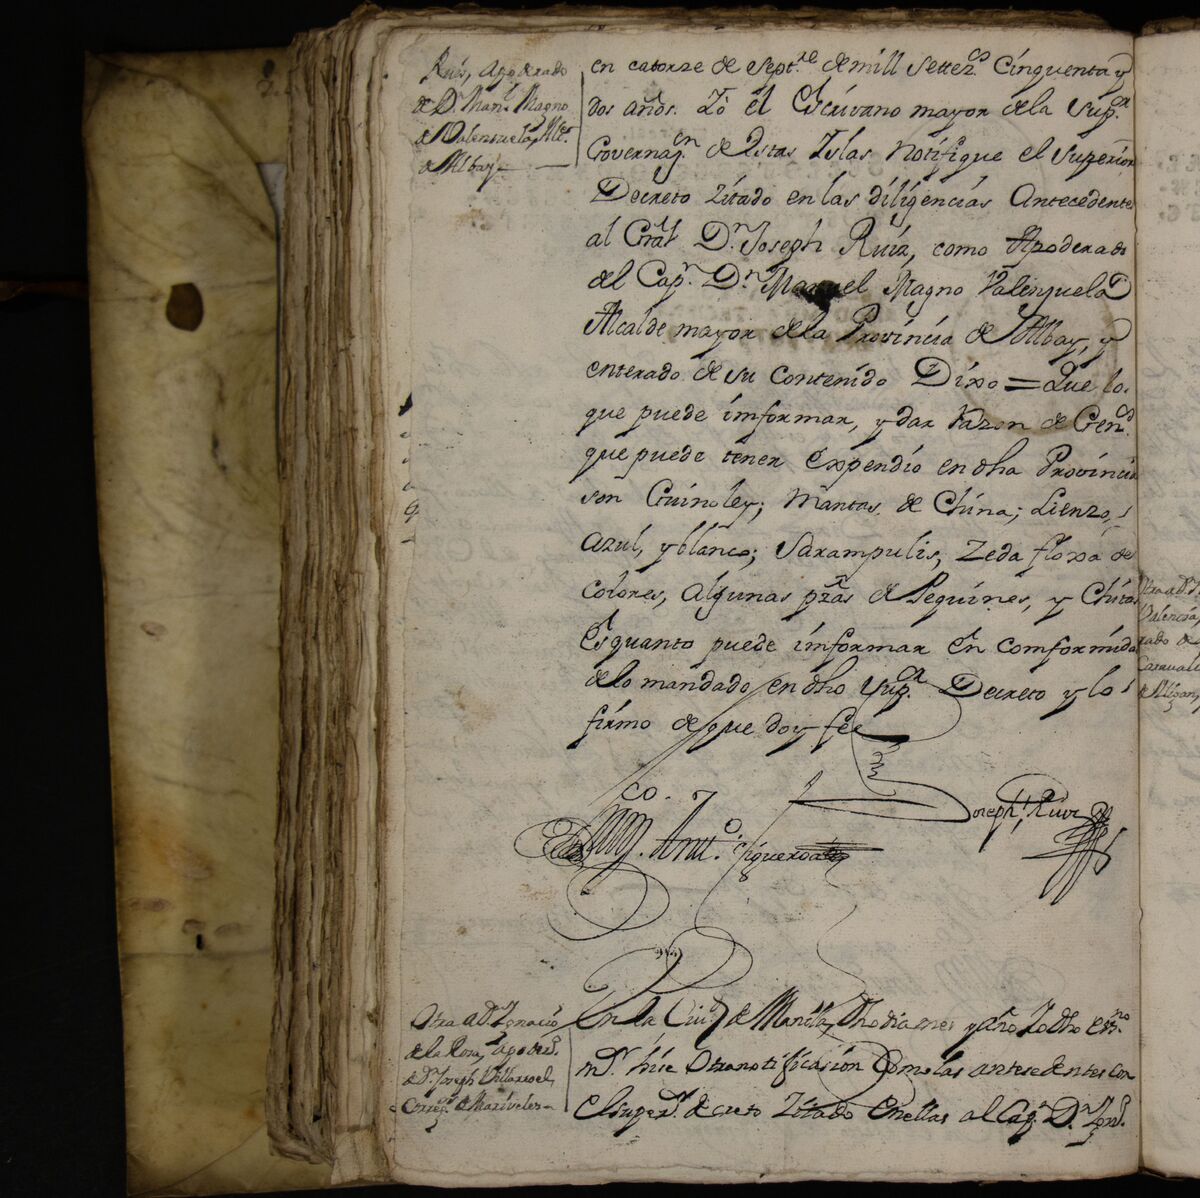 Ruiz, Apoderado
de Dn. Manl. Magno
de Valenzuela, Alte.
de Albay
en catorze de Septre. de mill Settezos. Cinquenta y
dos años. Yo el Escrivano mayor de la Supor.
Governazn. de Estas Islas Notifique el Superior
Decreto Zitado en las diligencias Antecedentes
al Gral Dn. Joseph Ruiz, como Apoderado
del Capn. Dn. Manuel Magno Valenzuela
Alcalde mayor de la Provincia de Albay, y
enterado de su Contenido Dixo = Que lo
que puede imformar, y dar razon de Genos.
que puede tener Expendio en dha Provincia
son Guinoles; Mantas de China; Lienzos
azul, y blanco; Sarampulis, Zeda floxa de
colores, algunas pzas de Pequines, y Chitas
Es quanto puede imformar En comformidad
de lo mandado en dho Supor. Decreto y lo
firmo de que doy fee
Joseph Ruiz
Anto. Figueroa
Otra a Dn. Ignacio
de la Rosa, apoderdo.
de Dn. Joseph Villarroel
Corregor. de Mariveles
En la Ciud. de Manila, dho dia mes y año Yo dho Essno.
mr. hise Otra notificasion Como las antesedentes con
El Superor. decreto Zitado En ellas al Capn. Dn. Igno.
Otra a Dn.
Valencia,
rado de
Caraval